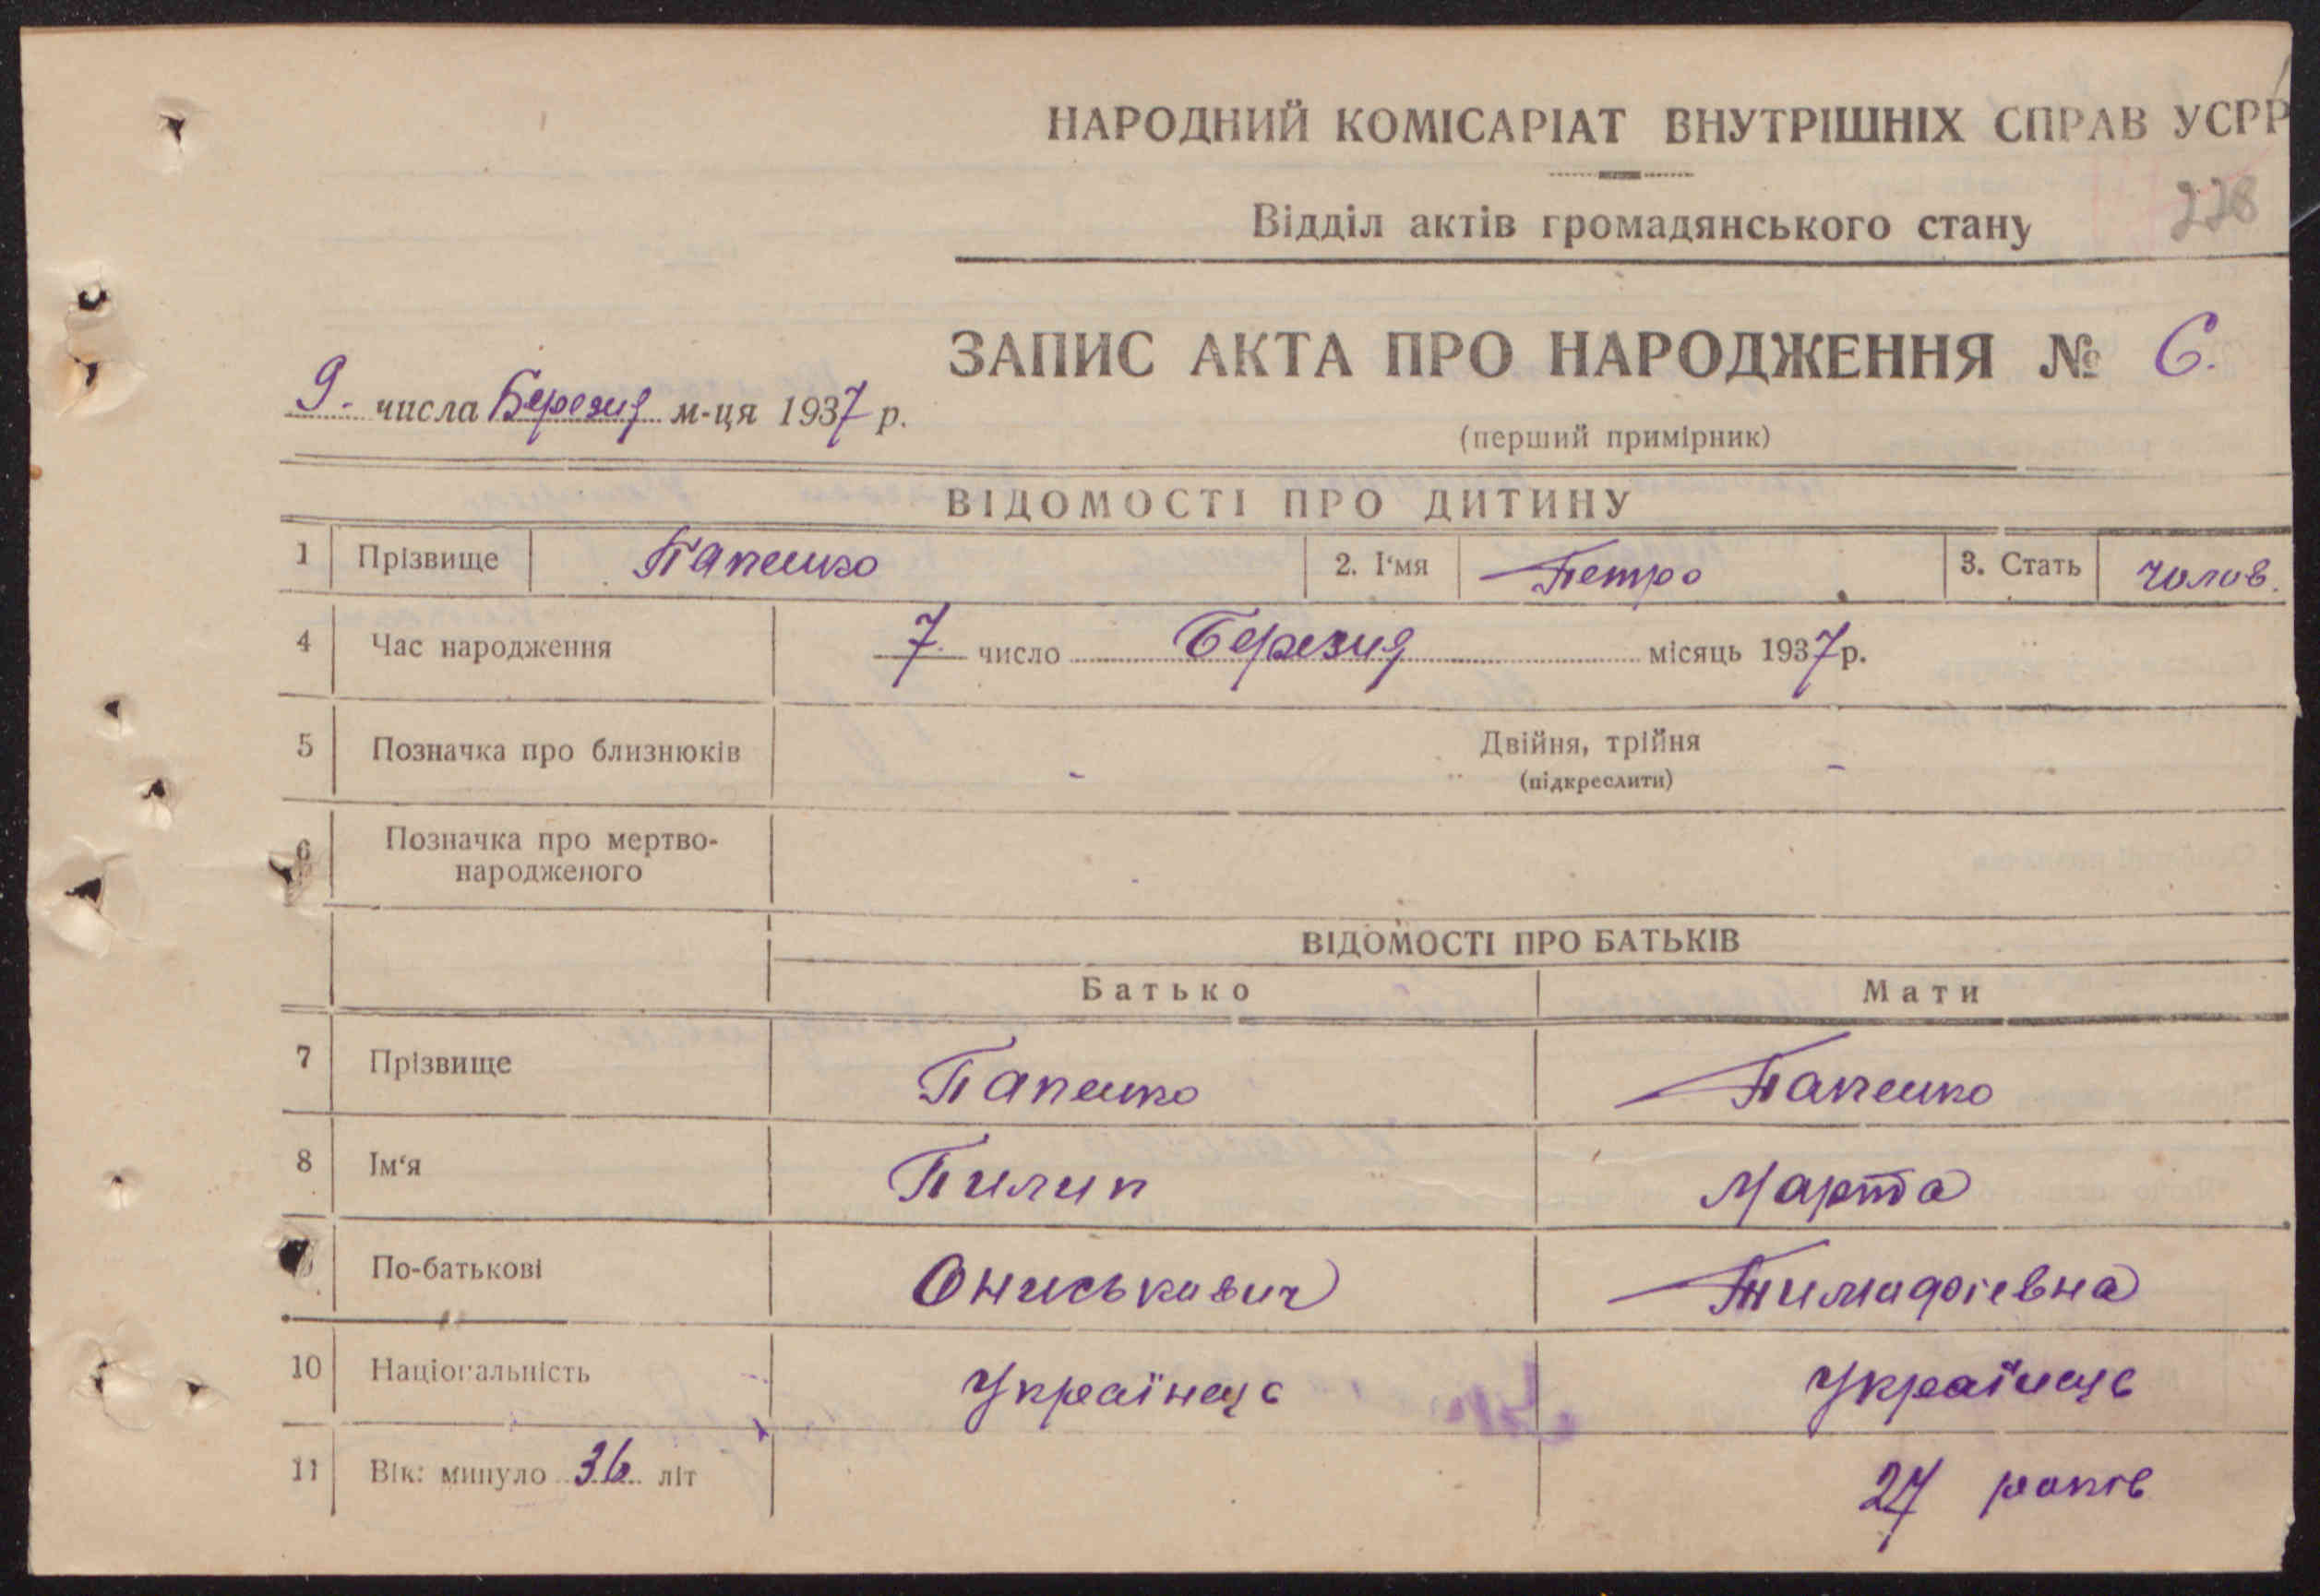 НАРОДНИЙ КОМІСАРІАТ ВНУТРІШНІХ СПРАВ УСРР
228
Відділ актів громадянського стану
ЗАПИС АКТА ПРО НАРОДЖЕННЯ № 6.
9. числа Березня м-ця 1937 р.
(перший примірник)
ВІДОМОСТІ ПРО ДИТИНУ
1 Прізвище Папенко 2. І'мя Петро 3. Стать чолов.
4 Час народження 7. число Березня місяць 1937 р.
5 Позначка про близнюків - Двійня, трійня -
(підкреслити)
6 Позначка про мертво-
народженого
ВІДОМОСТІ ПРО БАТЬКІВ
Батько Мати
7 Прізвище Папенко Папенко
8 Ім'я Пилип Марта
По-батьковіОниськович Тимофіевна
10 Національність Українець Українець
11 Вік: минуло 36 літ 27 років